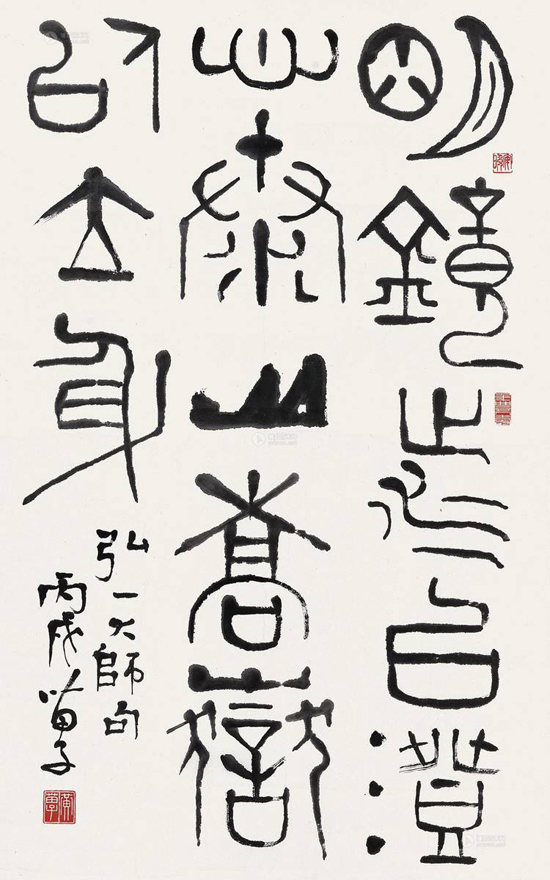 明鏡止水以澄
心泰山喬嶽
以立身
弘一大師句
丙戌苗子